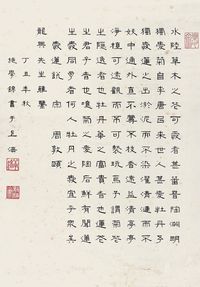 水陸草木之花可愛者甚蕃晉陶淵明
獨愛菊自李唐來世人甚愛牡丹予
獨愛蓮之出淤泥而不染濯清漣而不
妖中通外直不蔓不枝香遠益清亭亭
淨植可遠觀而不可褻玩焉予謂菊花
之隱逸者也牡丹花之富貴者也蓮花
之君子者也噫菊之愛陶後鮮有聞蓮
之愛同予者何人牡丹之愛宜乎眾矣
愛蓮說 宋 周敦頤
龍興先生雅鑒
丁丑季秋
後學錦書于